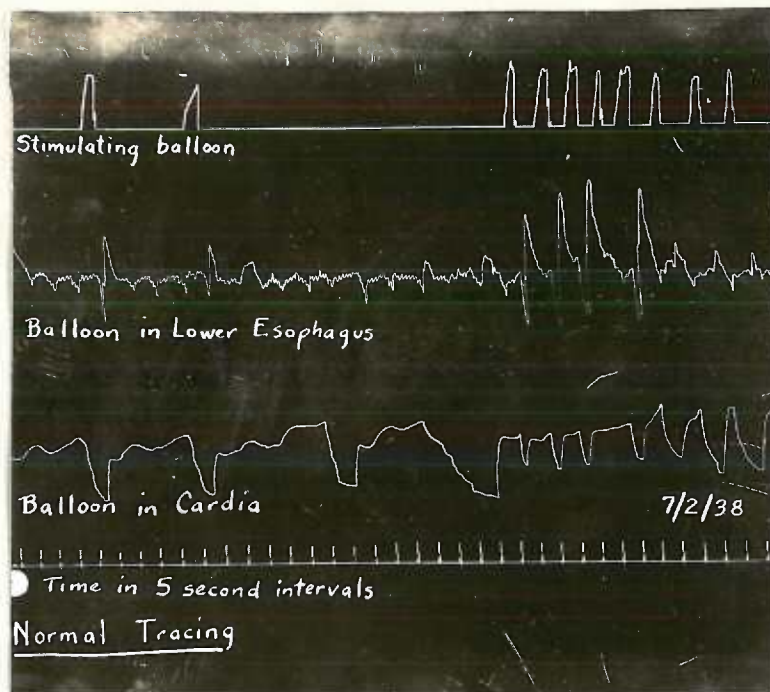 Stimulating balloon
Balloon in Lower Esophagus
Balloon in Cardia
7/2/38
Time in 5 second intervals
Normal Tracing